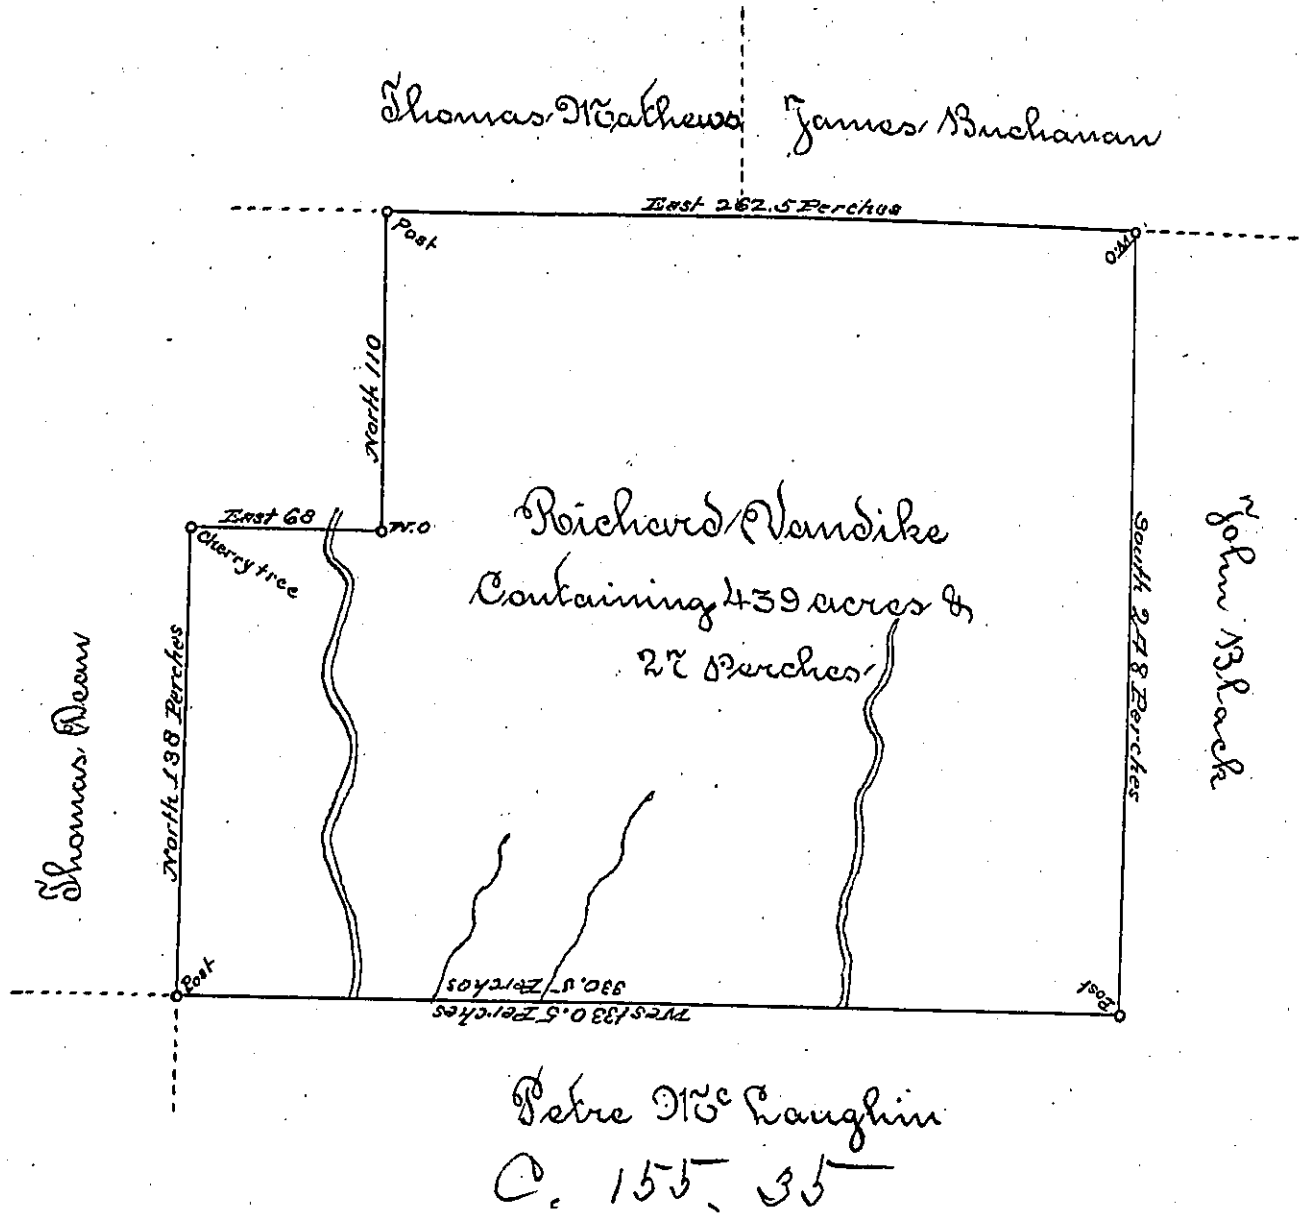 Thomas Mathews James Buchanan
East 262.5 Perches
Post
W.O
North 110
East 68
W.O
Cherrytree
Richard Vandike
Containing 439 acres &
27 Perches
North 138 Perches
South 248 Perches
Thomas Dean
John Black
Post
Post
330.5 Perches
West 330.5 Perches
Petre Mc Laughlin
C. 155. 35